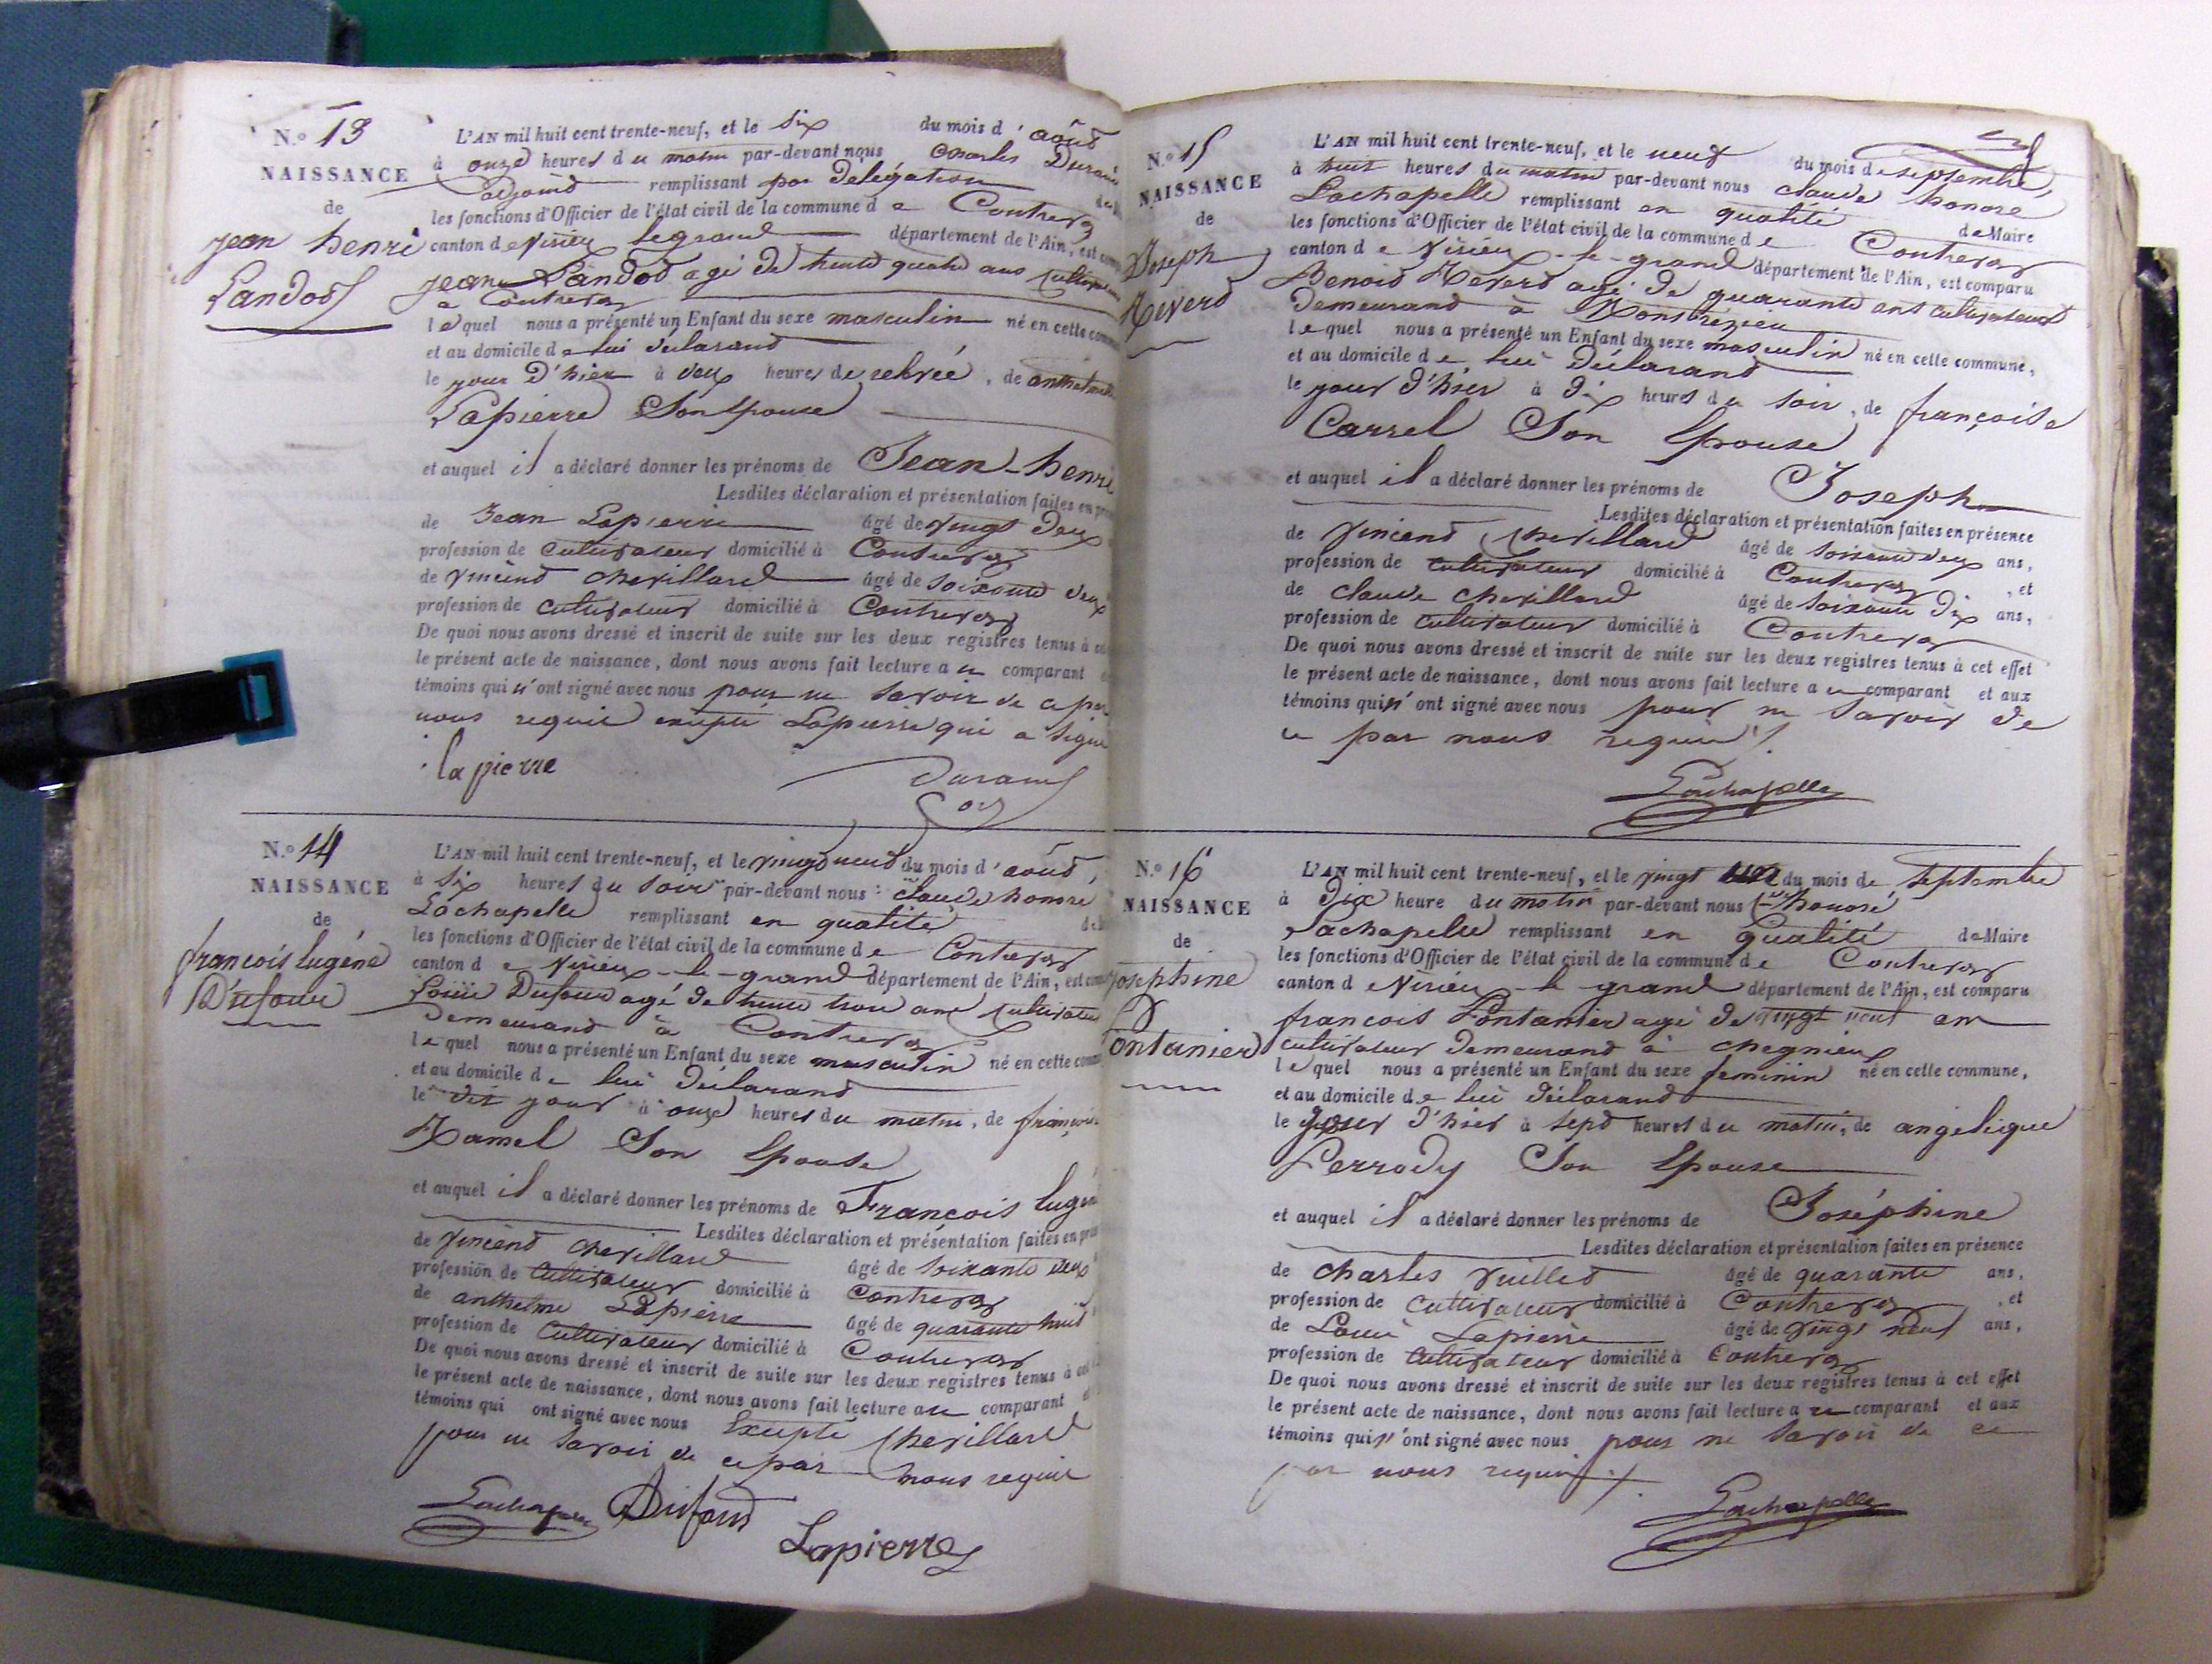 N.º 13
NAISSANCE
de
jean henri
Landoz
L'AN mil huit cent trente-neuf, et le six du mois d'août
à onze heures du matin par-devant nous Charles Durand
adjoind remplissant par délégation
les fonctions d'Officier de l'état civil de la commune de Contrevoz
canton de Virieu legrand département de l'Ain, est
jean Landoz agé de trente quatre ans
a Contrevoz
lequel nous a présenté un Enfant du sexe masculin né en cette
et au domicile de lui declarand
le jour d'hier à deux heures de relevée, de anthelmette
Lapierre Son Epouse
et auquel il a déclaré donner les prénoms de Jean-henri
Lesdites déclaration et présentation faites en
de Jean Lapierre âgé de vingt deux
profession de cultivateur domicilié à Contrevoz
de vincend chevillard âgé de soixante deux
profession de cultivateur domicilié à Contrevoz
De quoi nous avons dressé et inscrit de suite sur les deux registres tenus à
le présent acte de naissance, dont nous avons fait lecture au comparant
témoins qui n'ont signé avec nous pour ne savoir de ce par
nous requis excepté Lapierre qui a signé
lapierre
Durand
N.º 14
NAISSANCE
de
françois Eugéne
Dufour
L'AN mil huit cent trente-neuf, et le vingt neuf du mois d'août,
à six heures du soir par-devant nous Claude honoré
Lachapelle remplissant en qualité
les fonctions d'Officier de l'état civil de la commune de Contrevoz
canton de Virieu-le-grand département de l'Ain, est
Louis Dufour agé de trente trois ans cultivateur
demeurand à Contrevoz
lequel nous a présenté un Enfant du sexe masculin né en cette
et au domicile de lui déclarand
le dit jour à onze heures du matin, de
Hamel Son Epouse
et auquel il a déclaré donner les prénoms de François
Lesdites déclaration et présentation faites en
de vincend chevillard âgé de soixante deux
profession de cultivateur domicilié à Contrevoz
de anthelme Lapierre âgé de quarante huit
profession de cultivateur domicilié à Contrevoz
De quoi nous avons dressé et inscrit de suite sur les deux registres tenus à
le présent acte de naissance, dont nous avons fait lecture au comparant
témoins qui ont signé avec nous Excepté chevillard
pour ne savoir de ce par nous requis
Lachapelle Dufour
Lapierre
N.º 15
NAISSANCE
de
Joseph
Reverd
L'AN mil huit cent trente-neuf, et le neuf du mois de septembre,
à huit heures du matin par-devant nous claude honoré
Lachapelle remplissant en qualité de Maire
les fonctions d'Officier de l'état civil de la commune de Contrevoz
canton de Virieu-le-grand département de l'Ain, est comparu
Benoid Reverd agé de quarante ans cultivateur
demeurand à Montbrézieu
lequel nous a présenté un Enfant du sexe masculin né en cette commune,
et au domicile de lui déclarand
le jour d'hier à dix heures du soir, de françoise
Carrel Son Epouse
et auquel il a déclaré donner les prénoms de Joseph
Lesdites déclaration et présentation faites en présence
de Vincend chevillard âgé de soixante deux ans,
profession de cultivateur domicilié à Contrevoz, et
de claude chevillard âgé de soixante dix ans,
profession de cultivateur domicilié à Contrevoz
De quoi nous avons dressé et inscrit de suite sur les deux registres tenus à cet effet
le présent acte de naissance, dont nous avons fait lecture au comparant et aux
témoins qui n'ont signé avec nous pour ne savoir de
ce par nous requis
Lachapelle
N.º 16
NAISSANCE
de
josephine
Fontanier
L'AN mil huit cent trente-neuf, et le vingt du mois de septembre
à dix heure du matin par-devant nous honoré
Lachapelle remplissant en qualité de Maire
les fonctions d'Officier de l'état civil de la commune de Contrevoz
canton de Virieu-le-grand département de l'Ain, est comparu
françois Fontanier agé de vingt neuf ans
cultivateur demeurand à chegnieux
lequel nous a présenté un Enfant du sexe feminin né en cette commune,
et au domicile de lui déclarand
le jour d'hier à sept heures du matin, de angelique
Perrody Son Epouse
et auquel il a déclaré donner les prénoms de Joséphine
Lesdites déclaration et présentation faites en présence
de Charles vuilled âgé de quarante ans,
profession de cultivateur domicilié à Contrevoz, et
de Louis Lapierre âgé de vingt neuf ans,
profession de cultivateur domicilié à Contrevoz
De quoi nous avons dressé et inscrit de suite sur les deux registres tenus à cet effet
le présent acte de naissance, dont nous avons fait lecture au comparant et aux
témoins qui n'ont signé avec nous pour ne savoir de ce
par nous requis
Lachapelle